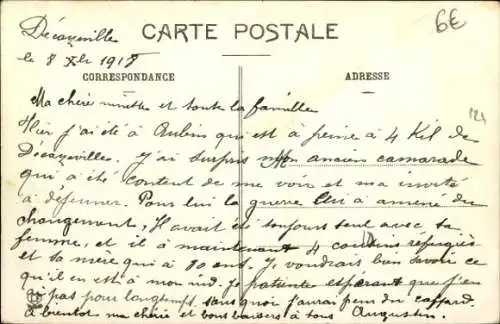 Décazeville
le 8 Xbre 1918
6€
CARTE POSTALE
CORRESPONDANCE
ADRESSE
Ma chère minette et toute la famille
Hier j'ai été à Aubin qui est à peine à 4 Kil de
Décazeville. J'ai surpris Mon ancien camarade
qui a été content de me voir et m'a invité
à déjeuner. Pour lui la guerre lui a amené du
changement, Il avait été toujours seul avec sa
femme, et il a maintenant 4 cousins réfugiés
et sa mère qui a 80 ans. Je voudrais bien savoir ce
qu'il en est à mon sud. Je patiente espérant que j'en
ai pas pour longtemps, sans quoi j'aurai peur du caffard.
A bientot ma chérie et bons baisers à tous Augustin.